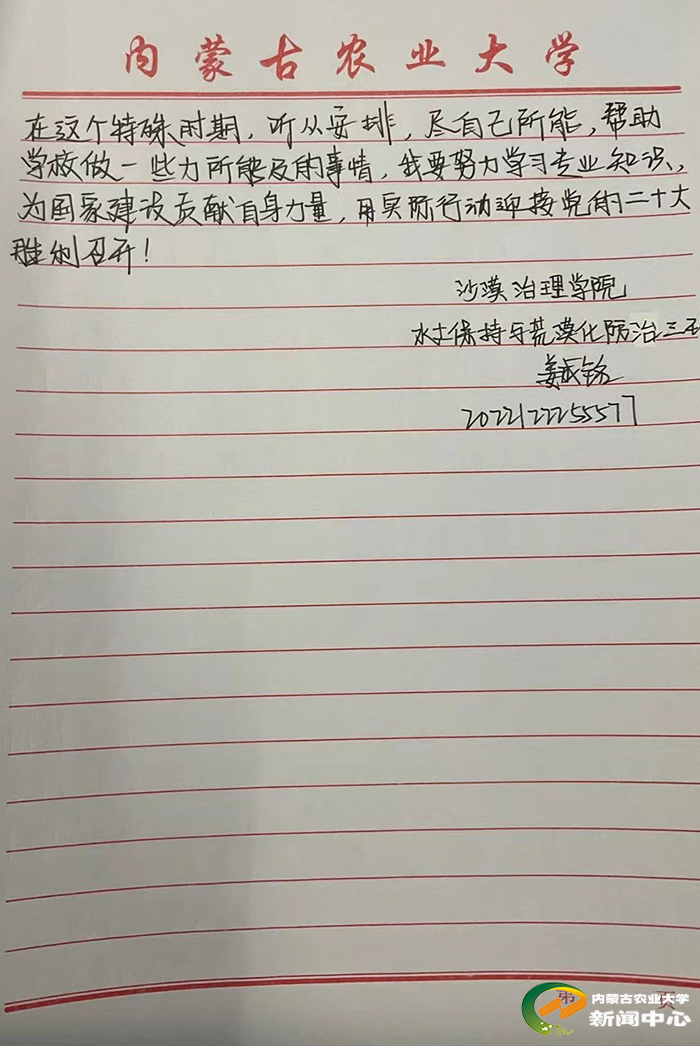 内蒙古农业大学
在这个特殊时期，听从安排，尽自己所能，帮助
学校做一些力所能及的事情，我要努力学习专业知识，
为国家建设贡献自身力量，用实际行动迎接党的二十大
胜利召开！
沙漠治理学院
水土保持与荒漠化防治三班
姜成铭
2022122255577
第 页
内蒙古农业大学
新闻中心